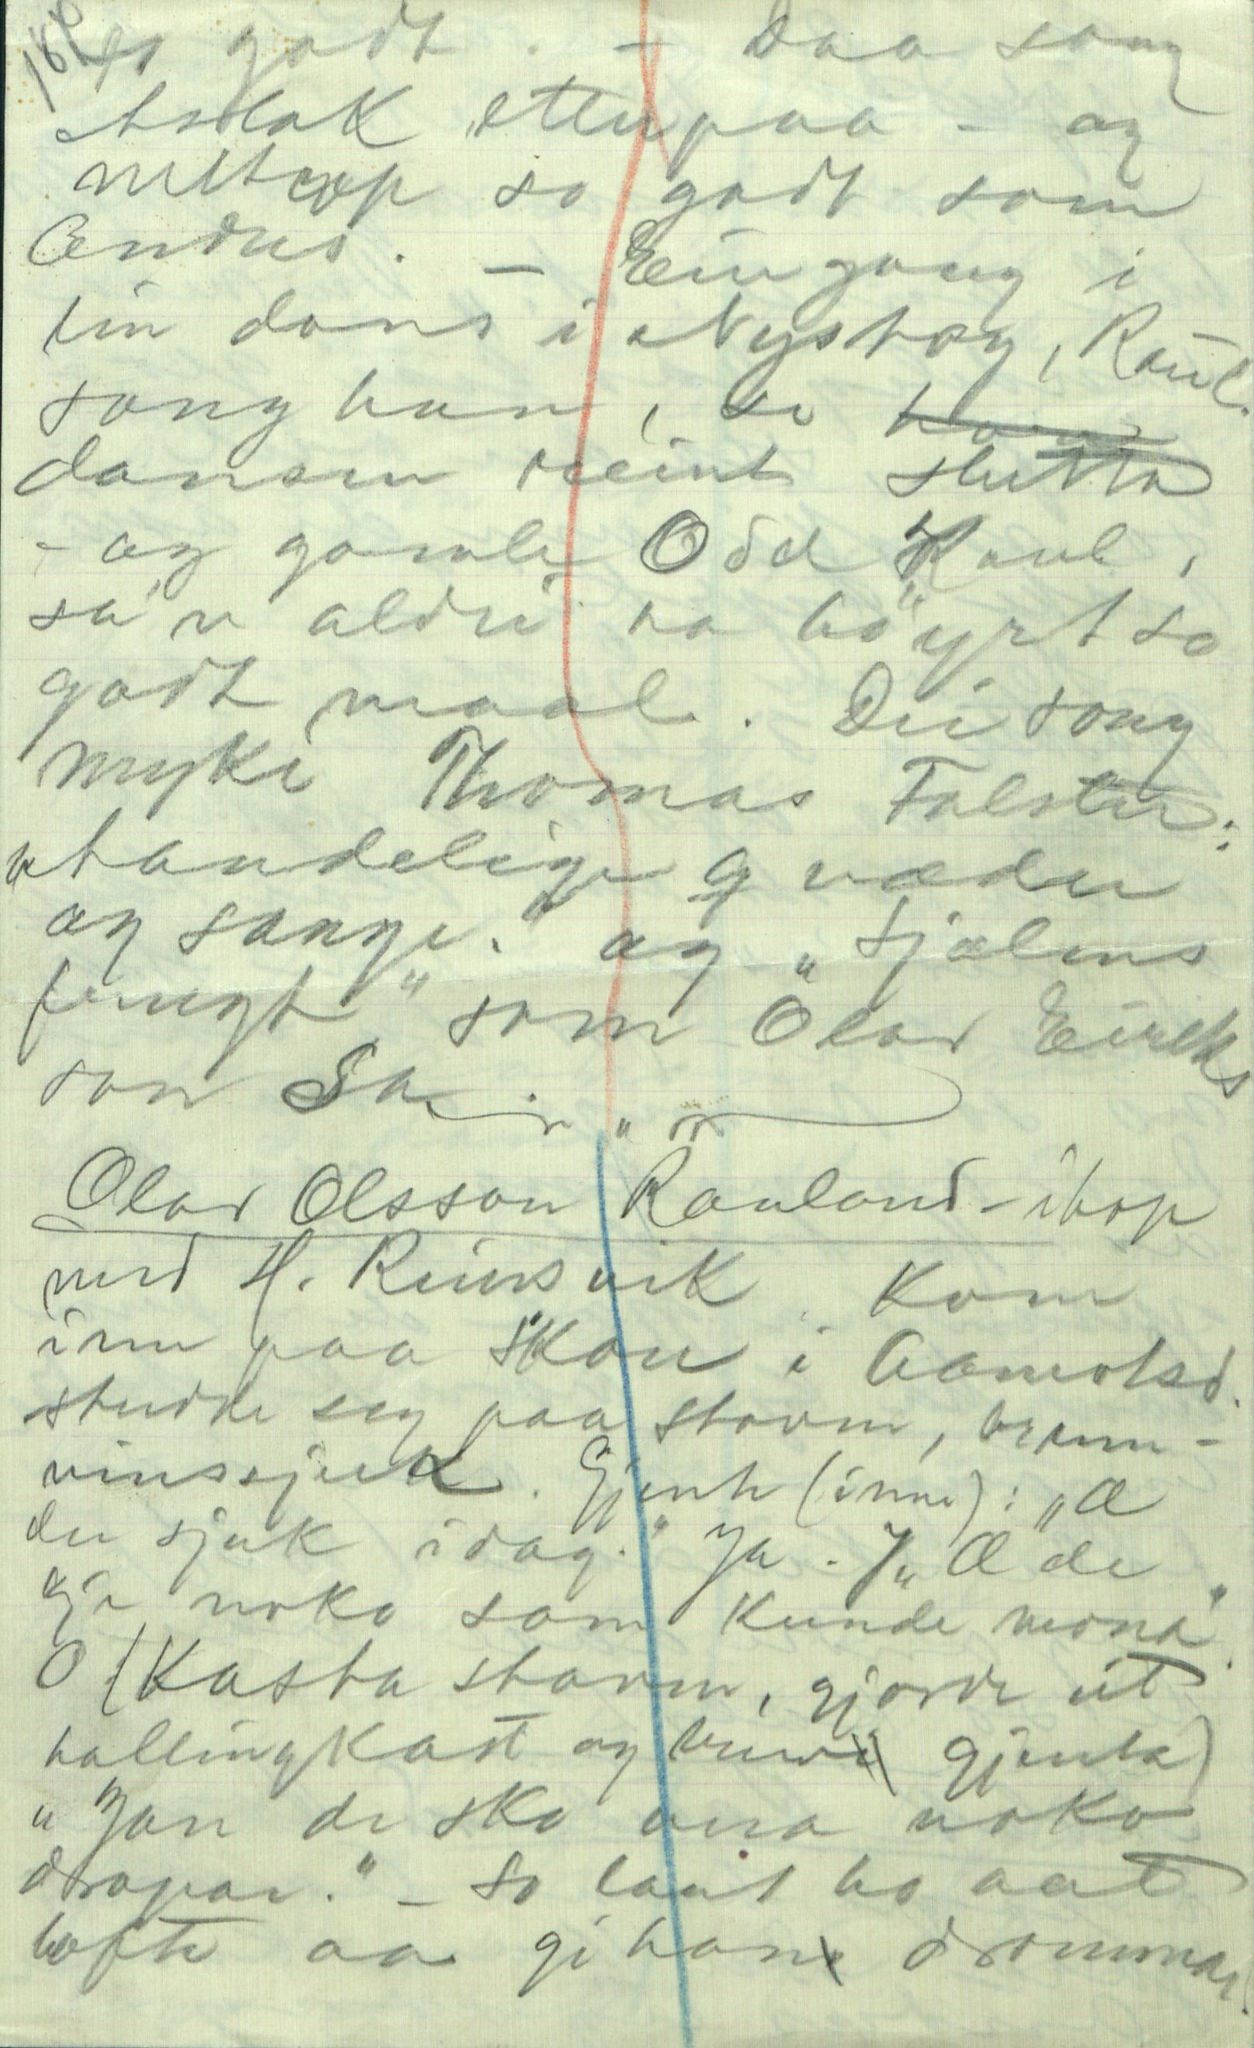 so godt. - Daa song
Aslak etterpaa - og
nettopp so godt som
Andres. - Ein gong i
ein dans i Nystog, Raul.
song han, so
dansen reint slutta
- og gamle Odd Raul,
sa 'n aldri ha høyrt so
godt maal. Dei song
myki Thomas Falster:
"Aandelige Qvæder
og sange." og "Sjælens
frugt" som Olav Eireks
son
Olav Olsson Rauland - ihop
med H. Reinsvik. Kom
inn paa Skori i Aamotsd.
studde seg paa staven, brenn-
vinssjuk. Gjenta (inne): "Æ
du sjuk idag." Ja. J. "Æ de
kje noko som kunde mona"
O (Kasta staven, gjorde eit
hallingkast og gjenta)
"Jau de sko vera noko
dropar." - So laut ho aat
lofte aa gi han drammar.